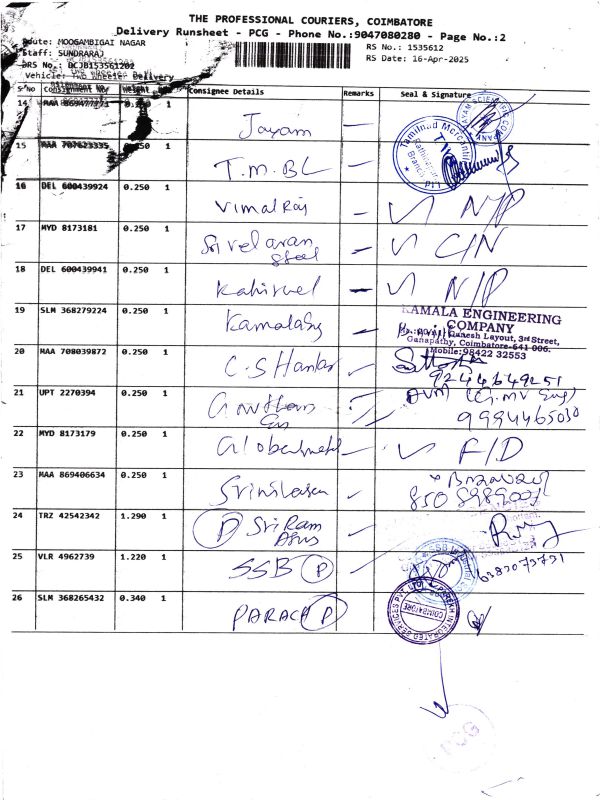 THE PROFESSIONAL COURIERS, COIMBATORE
Delivery Runsheet - PCG - Phone No.:9047080280 - Page No.:2
Route: MOOGAMBIGAI NAGAR
RS No.: 1535612
Staff: SUNDRARAJ
RS Date: 16-Apr-2025
DRS No.: BCJB153561202
Vehicle: Two Wheeler Delivery
S No Consignment No Weight Consignee Details Remarks Seal & Signature
14 MAA 869477371 0.250 1 Jayam
15 MAA 707623335 1 T.M.BL
Tamilnad Mercantile
16 DEL 600439924 0.250 1 Vimal Raj N/P
17 MYD 8173181 0.250 1 Sri velavan Steel C/N
18 DEL 600439941 0.250 1 Kahirvel N/P
19 SLM 368279224 0.250 1 Kamala
KAMALA ENGINEERING
COMPANY
Ganesh Layout, 3rd Street,
Ganapathy, Coimbatore-641 006.
Mobile:98422 32553
20 MAA 708039872 0.250 1 C.S Hankar
9244649251
21 UPT 2270394 0.250 1 Gowtham
9994465030
22 MYD 8173179 0.250 1 Global metal F/D
23 MAA 869406634 0.250 1 Srinivasan
24 TRZ 42542342 1.290 1 P Sri Ram
25 VLR 4962739 1.220 1 SSB P
26 SLM 368265432 0.340 1 PARACH P
PAREKH INTEGRATED SERVICES PVT LTD
COIMBATORE
PCG